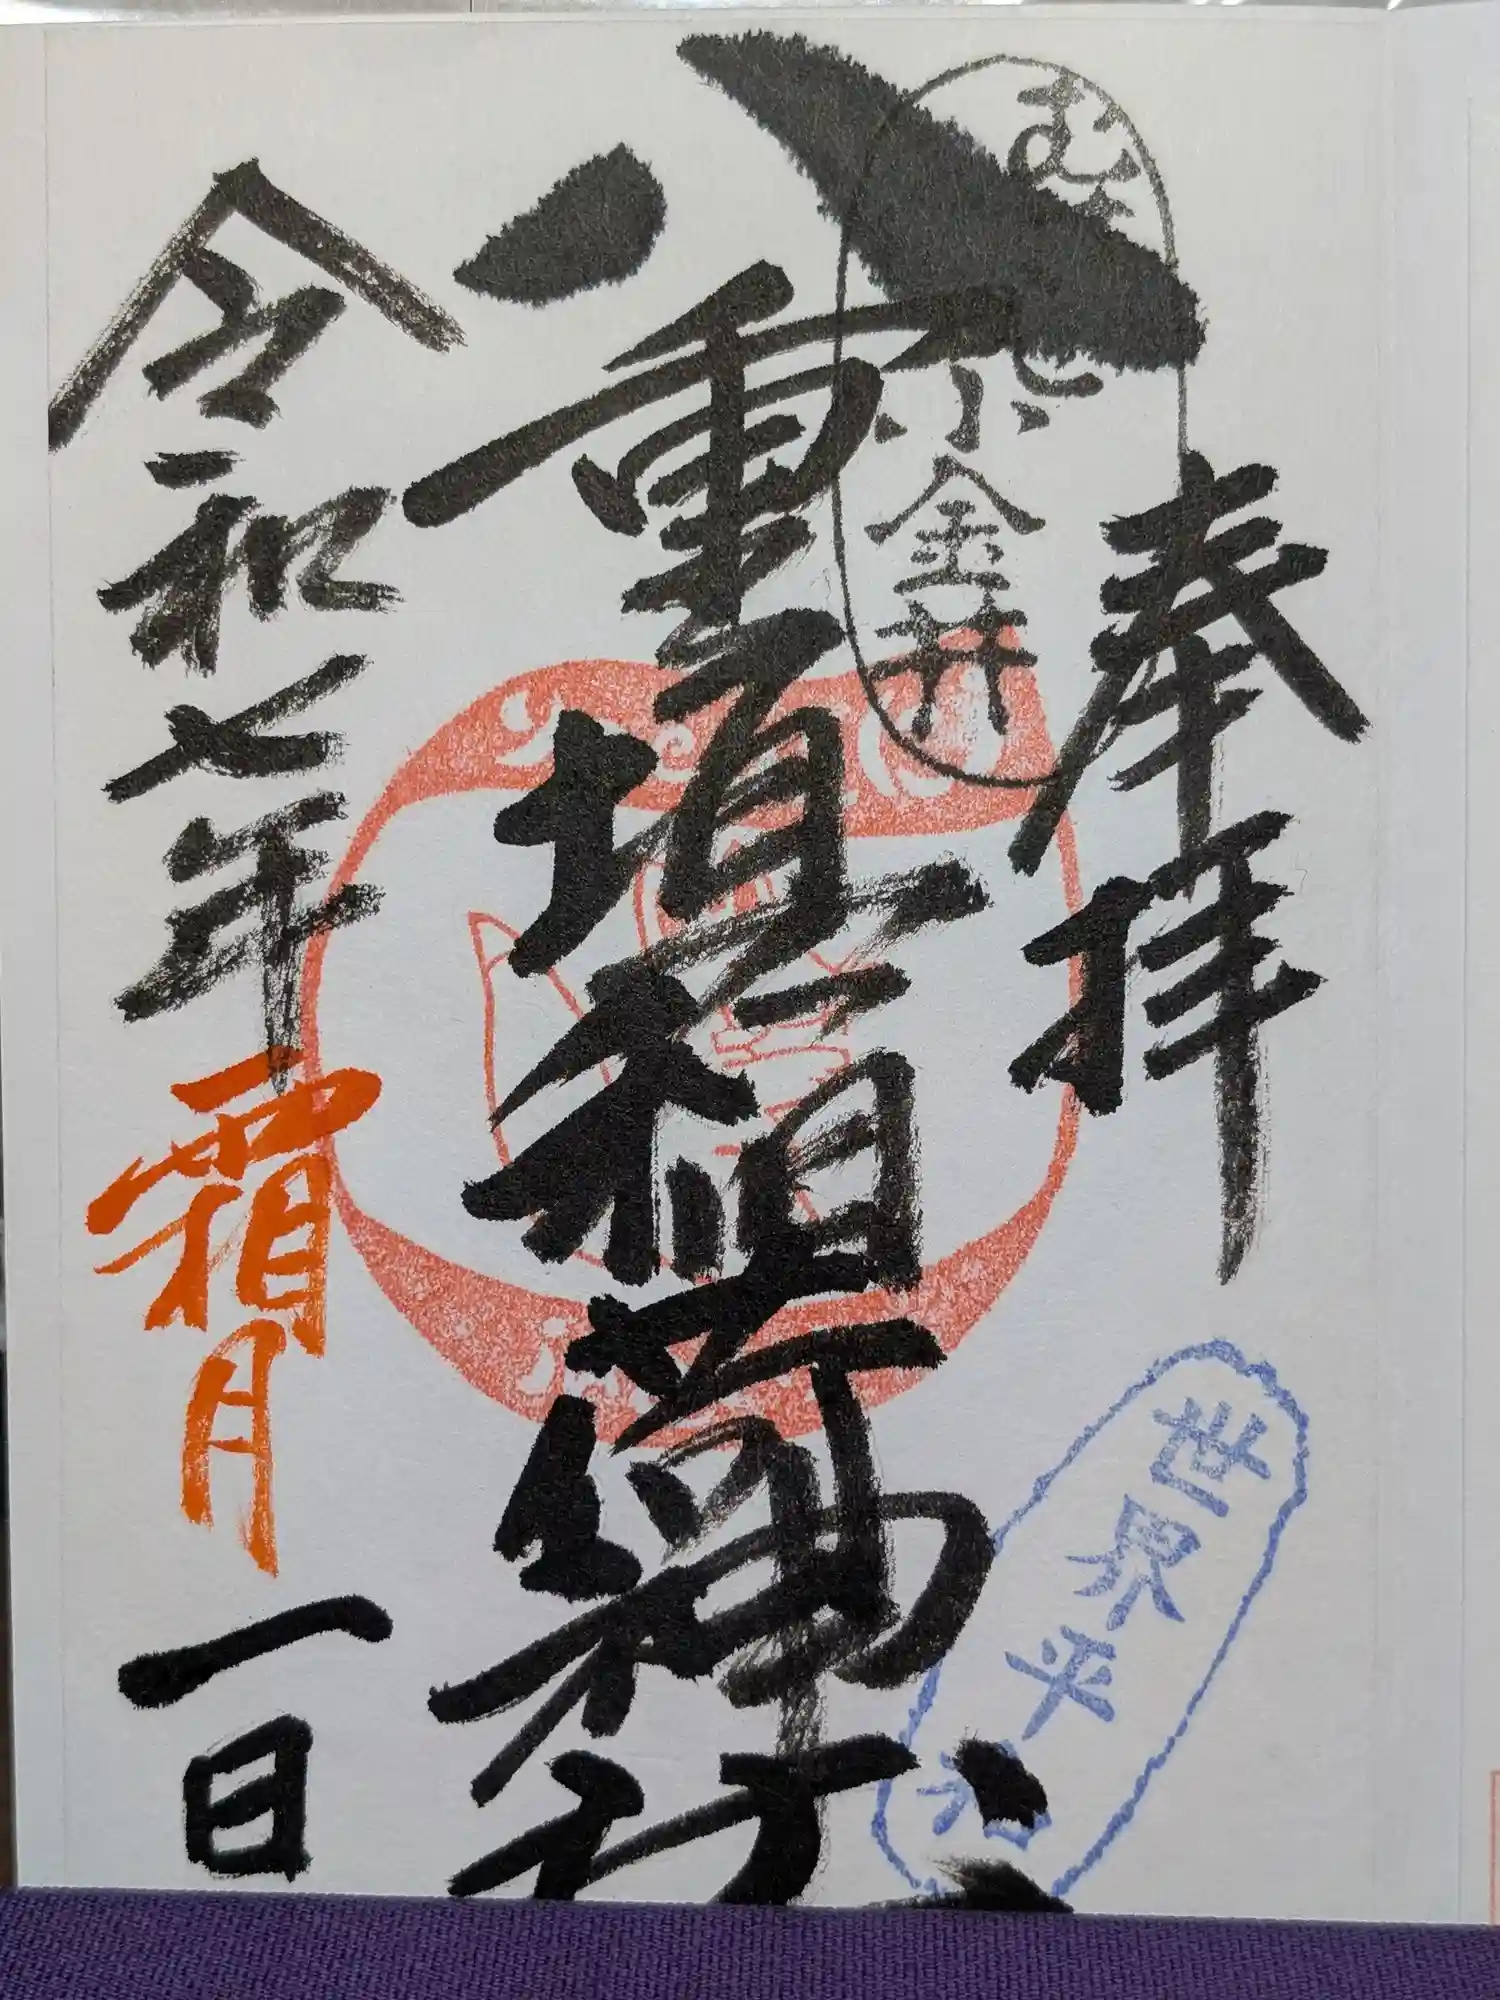 奉拝
むさし
小金井
八重垣稲荷神社
令和七年霜月一日
世界平和